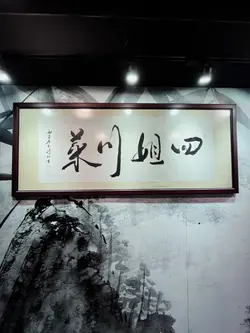 四姐川菜